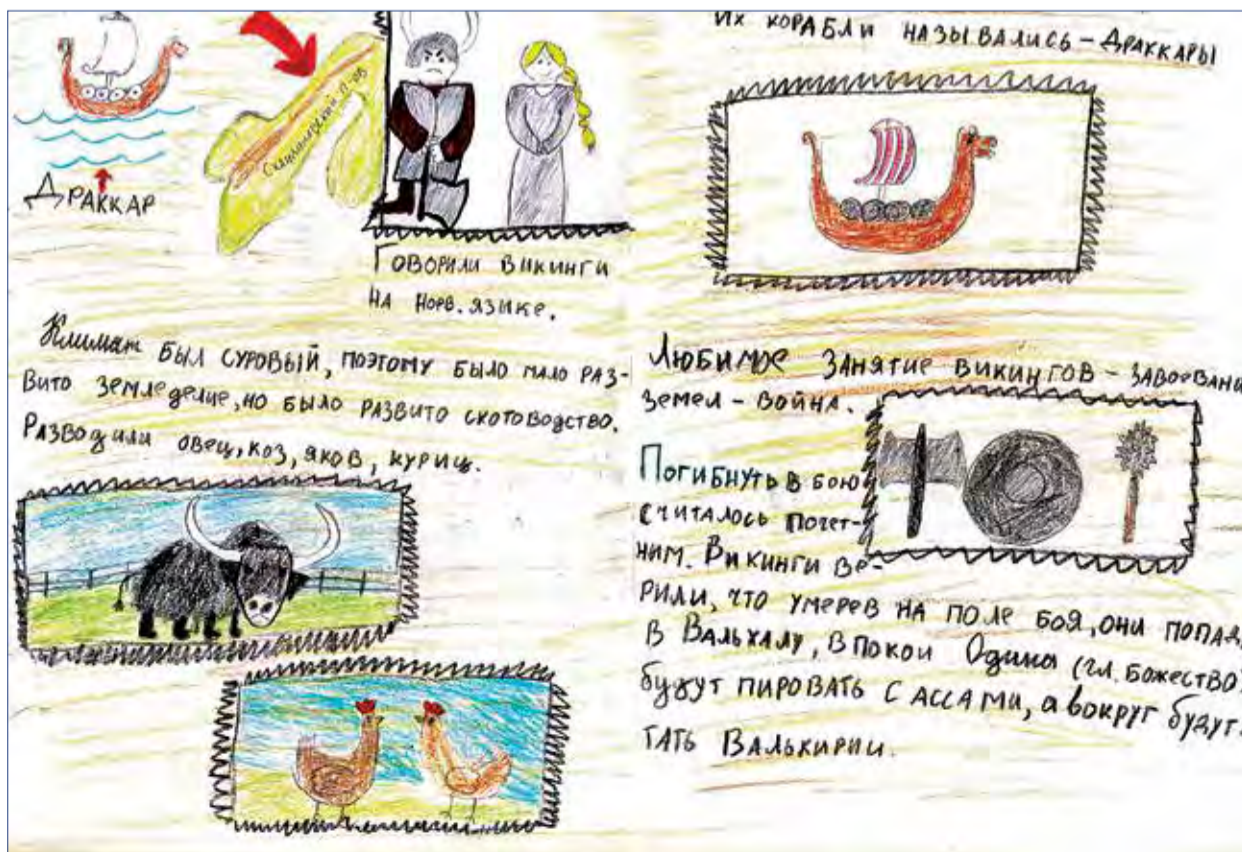 Драккар
Скандинавский п-ов
Говорили викинги
на норв. языке.
Климат был суровый, поэтому было мало раз-
вито земледелие, но было развито скотоводство.
Разводили овец, коз, яков, куриц.
их корабли назывались – Драккары
Любимое занятие викингов – завоевани
земел – война.
Погибнуть в бою
считалось почет-
ним. Викинги ве-
рили, что умерев на поле боя, они попад
в Вальхалу, в покои Одина (гл. божество)
будут пировать с ассами, а вокруг будут
тать Валькирии.